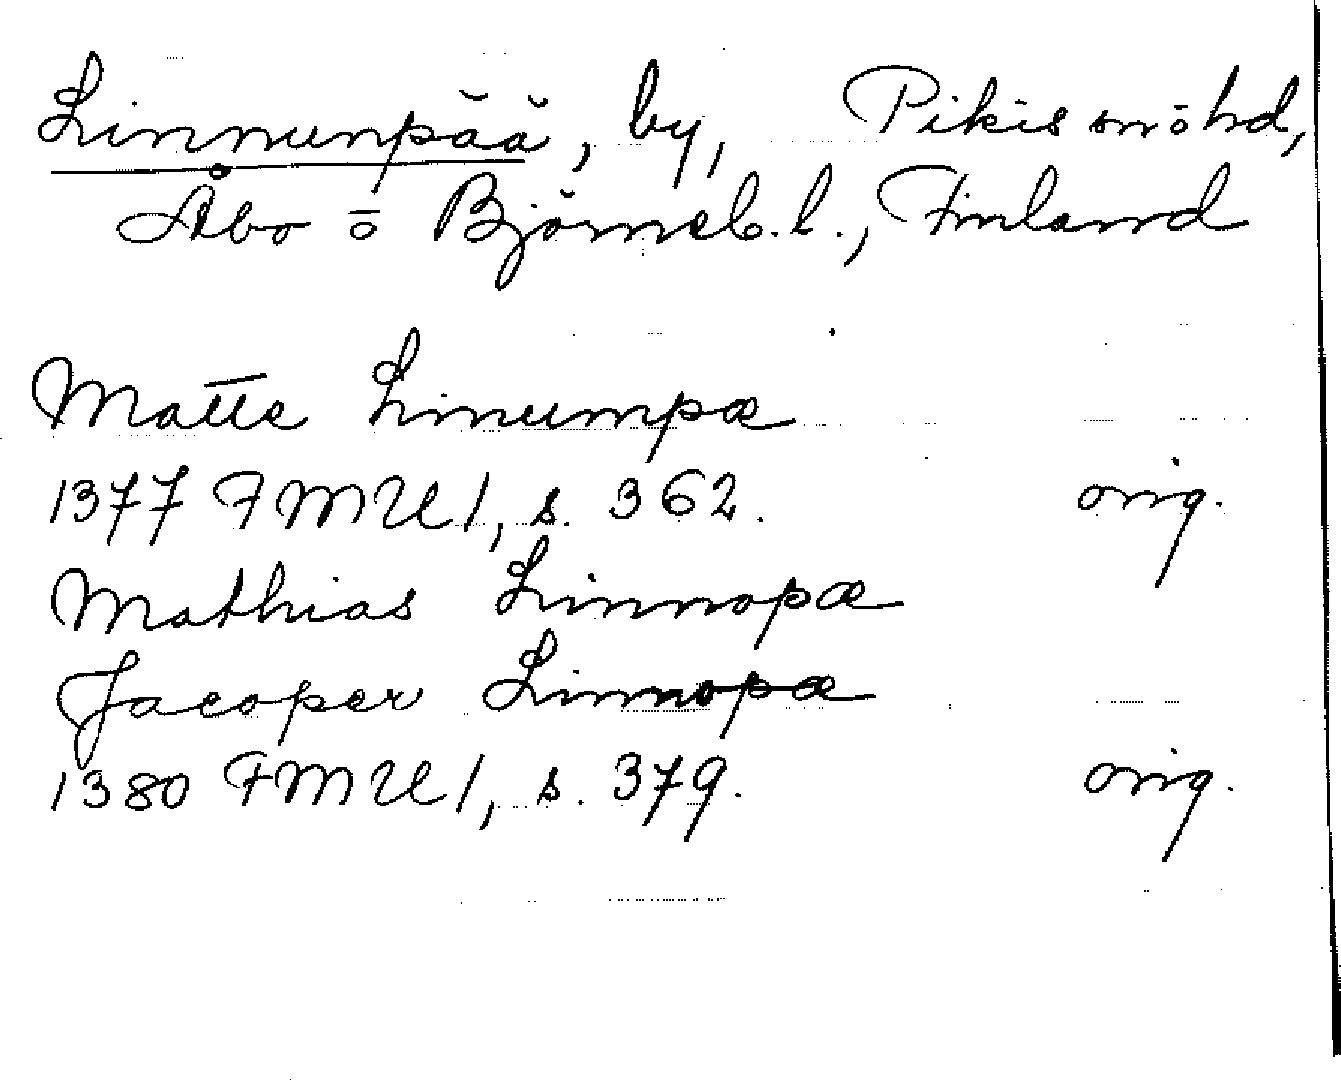 Linnunpää, by, Pikis snöhd,
Åbo o Björneb. l., Finland
Matte Linumpæ
1377 FMU 1, s. 362. orig.
Mathias Linnopæ
Jacoper Linnopæ
1380 FMU 1, s. 379. orig.